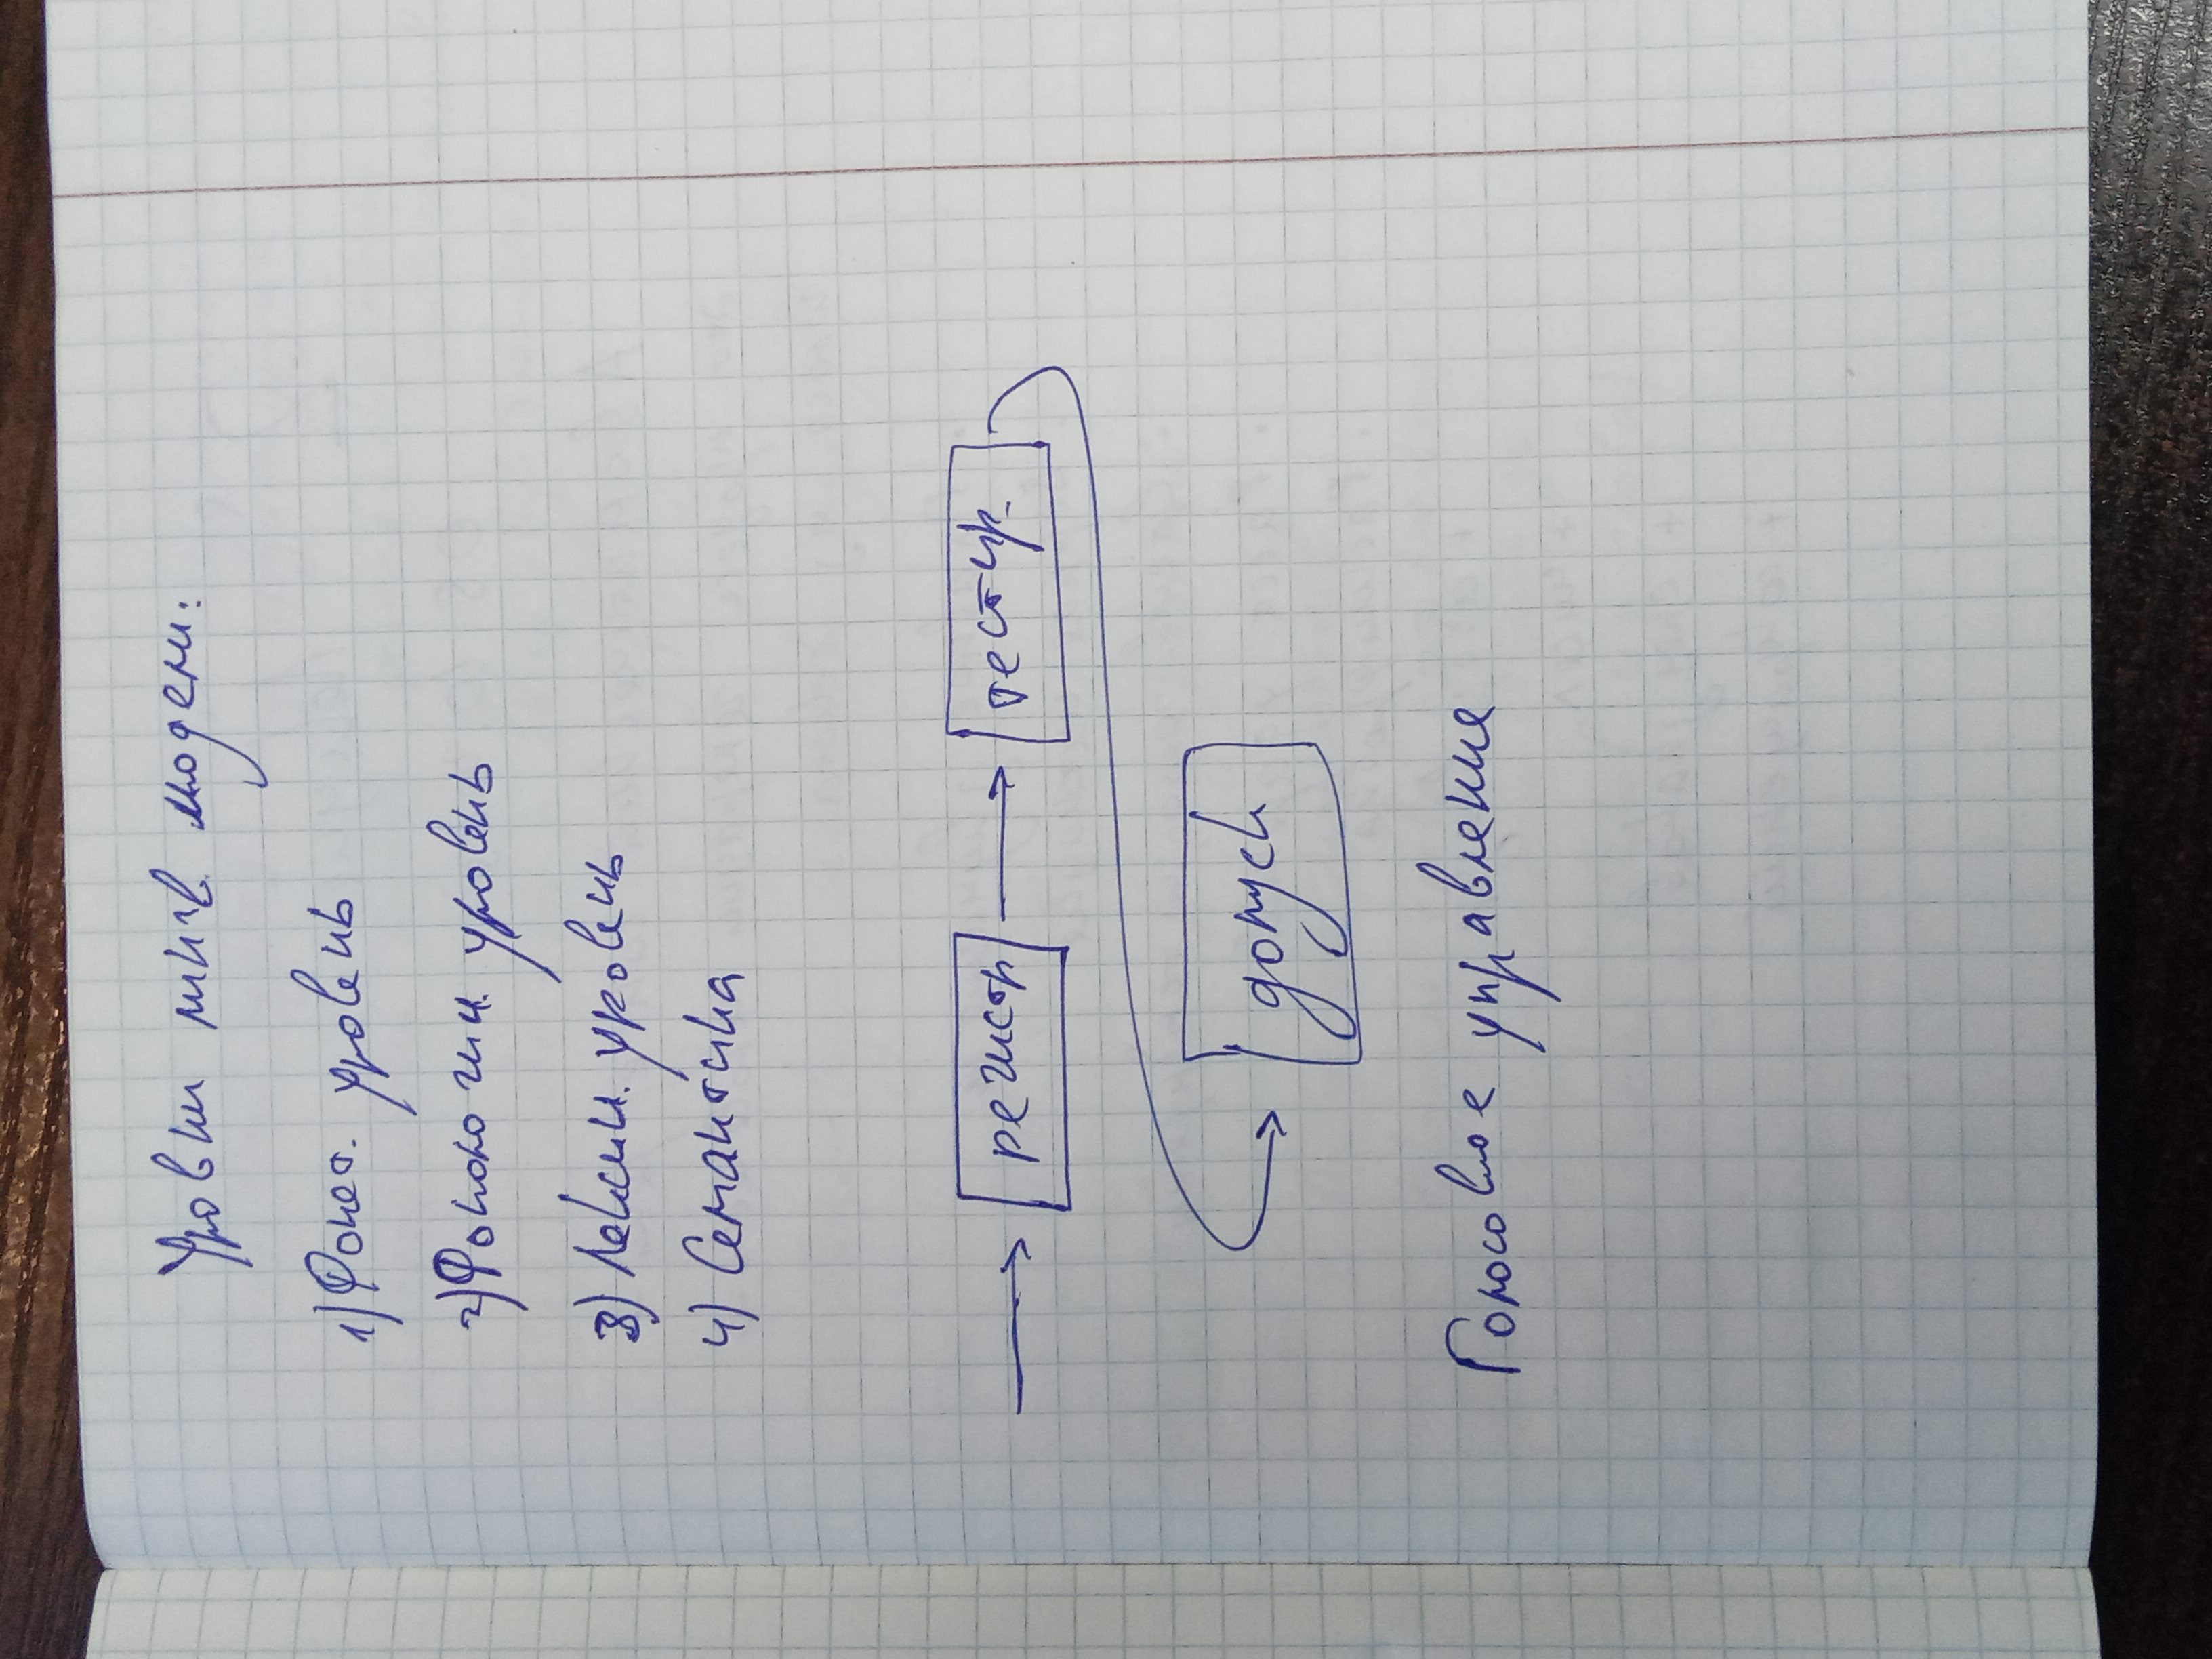 Уровни лингв. модели:
1) Фонет. уровень
2) Фонологич. уровень
3) Лексич. уровень
4) Семантика
регистр
тестир.
допуск
Голосовое управление